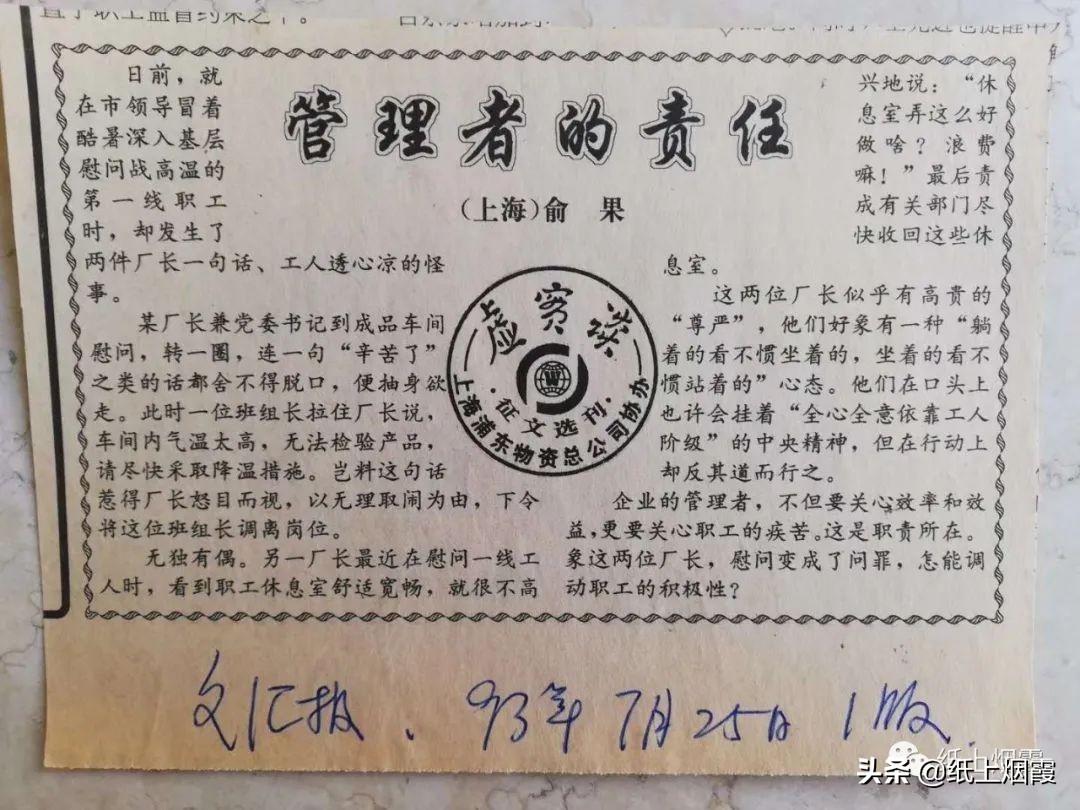 置于职工监督约束之下。
管理者的责任
（上海）俞 果
日前，就
在市领导冒着
酷暑深入基层
慰问战高温的
第一线职工
时，却发生了
两件厂长一句话、工人透心凉的怪
事。
某厂长兼党委书记到成品车间
慰问，转一圈，连一句“辛苦了”
之类的话都舍不得脱口，便抽身欲
走。此时一位班组长拉住厂长说，
车间内气温太高，无法检验产品，
请尽快采取降温措施。岂料这句话
惹得厂长怒目而视，以无理取闹为由，下令
将这位班组长调离岗位。
无独有偶。另一厂长最近在慰问一线工
人时，看到职工休息室舒适宽畅，就很不高
兴地说：“休
息室弄这么好
做啥？浪费
嘛！”最后责
成有关部门尽
快收回这些休
息室。
这两位厂长似乎有高贵的
“尊严”，他们好象有一种“躺
着的看不惯坐着的，坐着的看不
惯站着的”心态。他们在口头上
也许会挂着“全心全意依靠工人
阶级”的中央精神，但在行动上
却反其道而行之。
企业的管理者，不但要关心效率和效
益，更要关心职工的疾苦。这是职责所在。
象这两位厂长，慰问变成了问罪，怎能调
动职工的积极性？
虚实谈
·征文选刊·
上海浦东物资总公司协办
文汇报、93年7月25日 1版.
纸上烟霞
头条@纸上烟霞